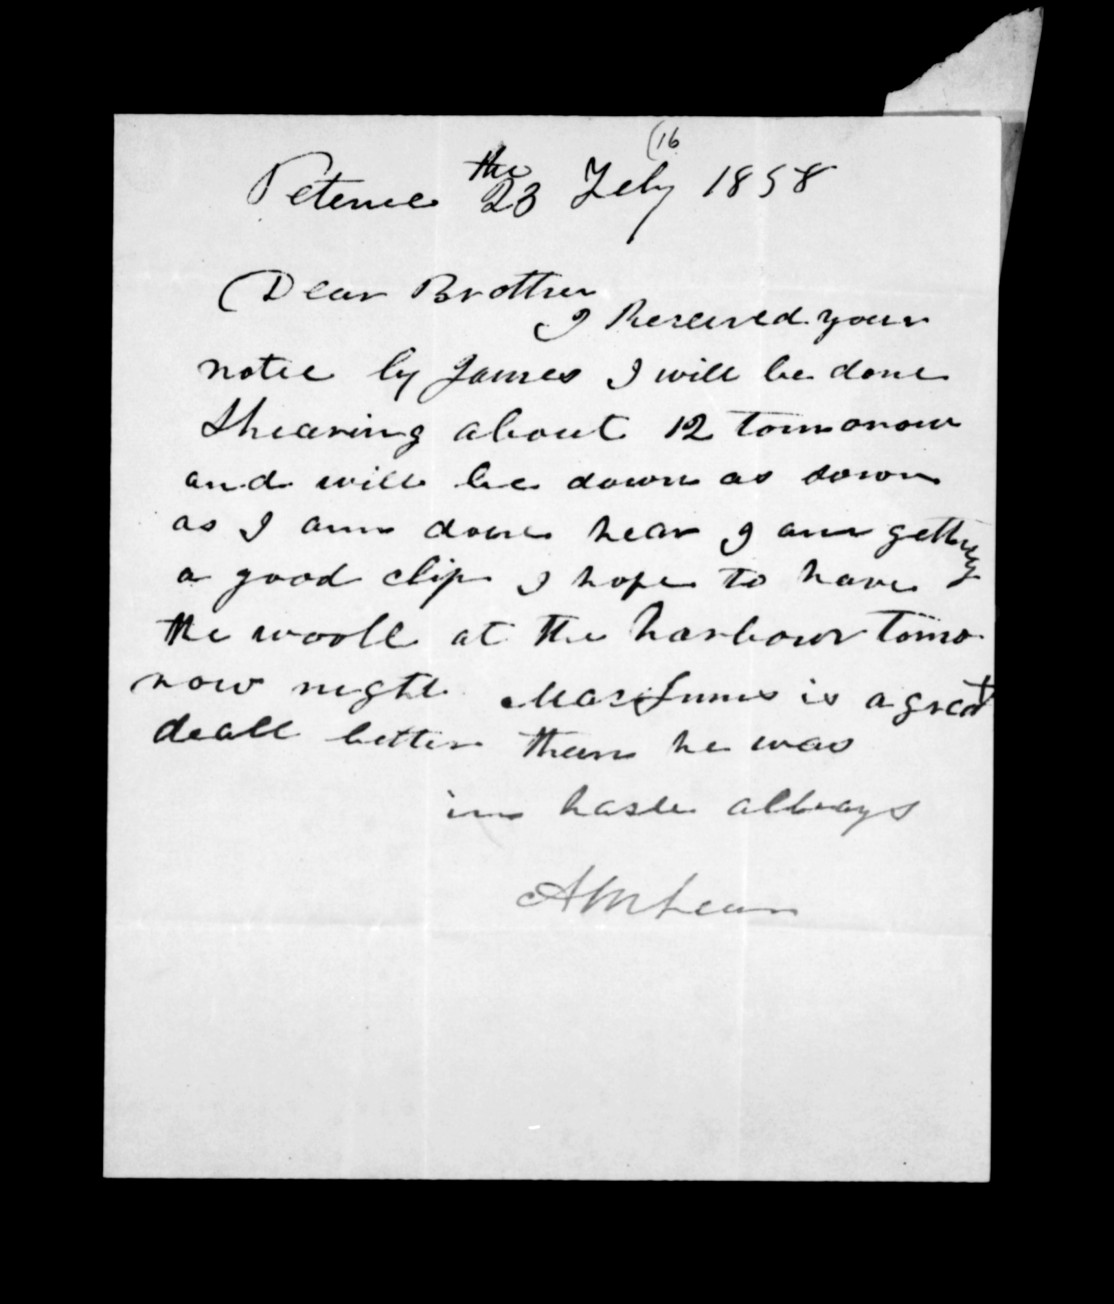 (16
Petenee the 23 Feby 1858
Dear Brother
I Received your
notie by James I will be done
Shearing about 12 tommorow
and will be down as soown
as I am done hear I am getting
a good clip I hope to have
the wooll at the harbour tomo
row night MacInnes is a great
deall better then he was
in haste allways
A McLean